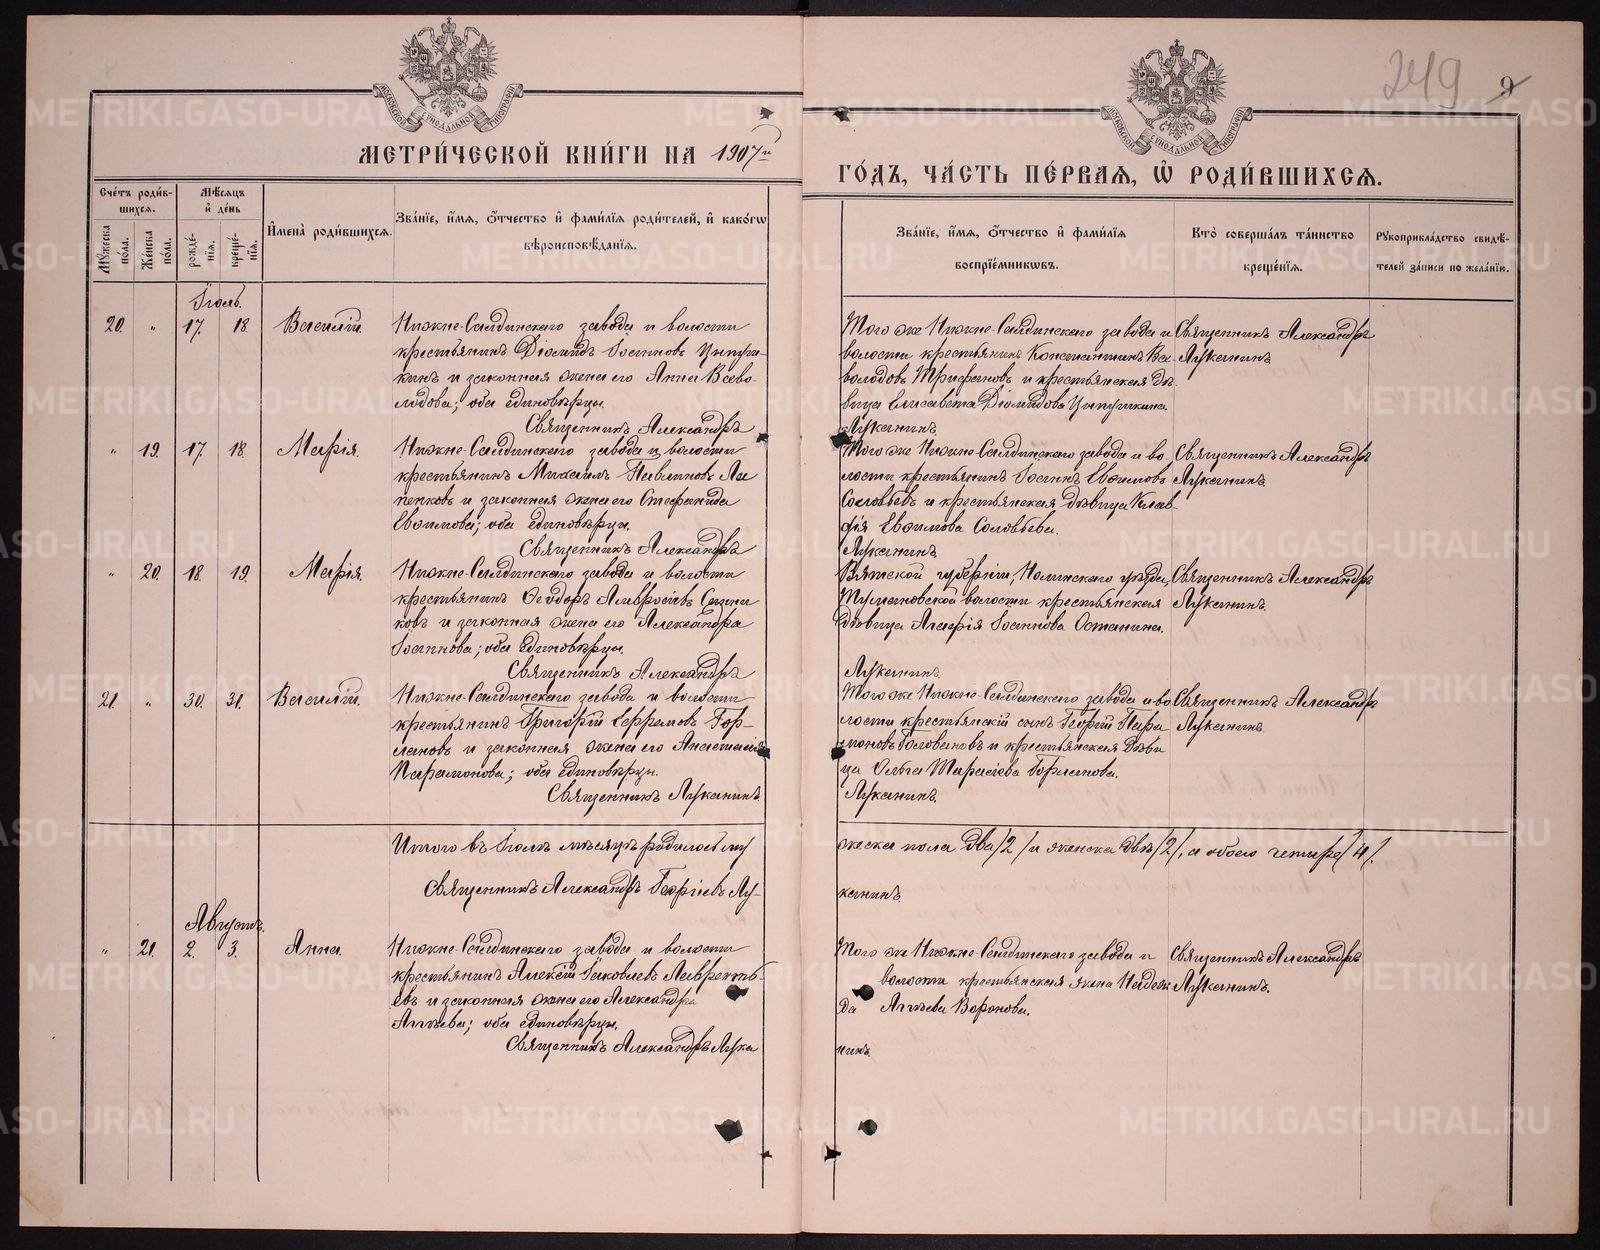 МЕТРИ́ЧЕСКОЙ КНИ́ГИ НА 1907й
ГО́ДЪ, ЧА́СТЬ ПЕ́РВАѦ, Ѡ҆ РОДИ́ВШИХСѦ.
249 9
Сче́тъ роди́в-
шихсѧ.
Мꙋ́жеска по́ла.
Же́нска по́ла.
Мѣ́сѧцъ и҆ де́нь
рожде́нїѧ.
креще́нїѧ.
И҆мена̀ роди́вшихсѧ.
Зва́нїе, и҆́мѧ, ѻ҆́тчество и҆ фами́лїѧ роди́телей, и҆ како́гѡ
вѣроисповѣ́данїѧ.
Зва́нїе, и҆́мѧ, ѻ҆́тчество и҆ фами́лїѧ
воспрїе́мникѡвъ.
Кто̀ соверша́лъ та́инство
креще́нїѧ.
Рꙋкоприкла́дство свидѣ́-
телей за́писи по жела́нїю.
Іюль.
20. „ 17. 18. Василій.
Нижне-Салдинскаго завода и волости
крестьянинъ Діомидъ Іоанновъ Цыпуш-
кинъ и законная жена его Анна Всево-
лодова; оба единовѣрцы.
Священникъ Александръ
Того же Нижне-Салдинскаго завода и
волости крестьянинъ Константинъ Все-
володовъ Трифановъ и крестьянская дѣ-
вица Елисавета Діомидова Цыпушкина.
Луканинъ
Священникъ Александръ
Луканинъ
„ 19. 17. 18. Марія.
Нижне-Салдинскаго завода и волости
крестьянинъ Михаилъ Павлиновъ Ла
пенковъ и законная жена его Стефанида
Евѳимова; оба единовѣрцы.
Священникъ Александръ
Того же Нижне-Салдинскаго завода и во
лости крестьянинъ Іоаннъ Евѳимовъ
Соловьевъ и крестьянская дѣвица Клав-
дія Евѳимова Соловьева.
Луканинъ
Священникъ Александръ
Луканинъ.
„ 20. 18. 19. Марія.
Нижне-Салдинскаго завода и волости
крестьянинъ Ѳеодоръ Амвросіевъ
ковъ и законная жена его Александра
Іоаннова; оба единовѣрцы.
Священникъ Александръ
Вятской губерніи, Нолинскаго уѣзда,
волости крестьянская
дѣвица Агафія Іоаннова Останина.
Луканинъ.
Священникъ Александръ
Луканинъ.
21. „ 30. 31. Василій.
Нижне-Салдинскаго завода и волости
крестьянинъ Григорій Ефремовъ Гор-
лановъ и законная жена его Анастасія
Парамонова; оба единовѣрцы.
Священникъ Луканинъ
Того же Нижне-Салдинскаго завода и во
лости крестьянскій сынъ Георгій Пара
моновъ Головановъ и крестьянская дѣви
ца Ольга Тарасіева Горланова.
Луканинъ.
Священникъ Александръ
Луканинъ.
Итого въ Іюлѣ мѣсяцѣ родилось му
жеска пола два /2/ и женска двѣ /2/, а обоего четыре /4/.
Священникъ Александръ Георгіевъ Лу-
канинъ.
Августъ.
„ 21. 2. 3. Анна.
Нижне-Салдинскаго завода и волости
крестьянинъ Алексій Іаковлевъ Лаврентъ-
евъ и законная жена его Александра
Агѣева; оба единовѣрцы.
Священникъ Александръ Лука
Того же Нижне-Салдинскаго завода и
волости крестьянская жена Надеж
да Агѣева Воронова.
нинъ.
Священникъ Александръ
Луканинъ.
METRIKI.GASO-URAL.RU